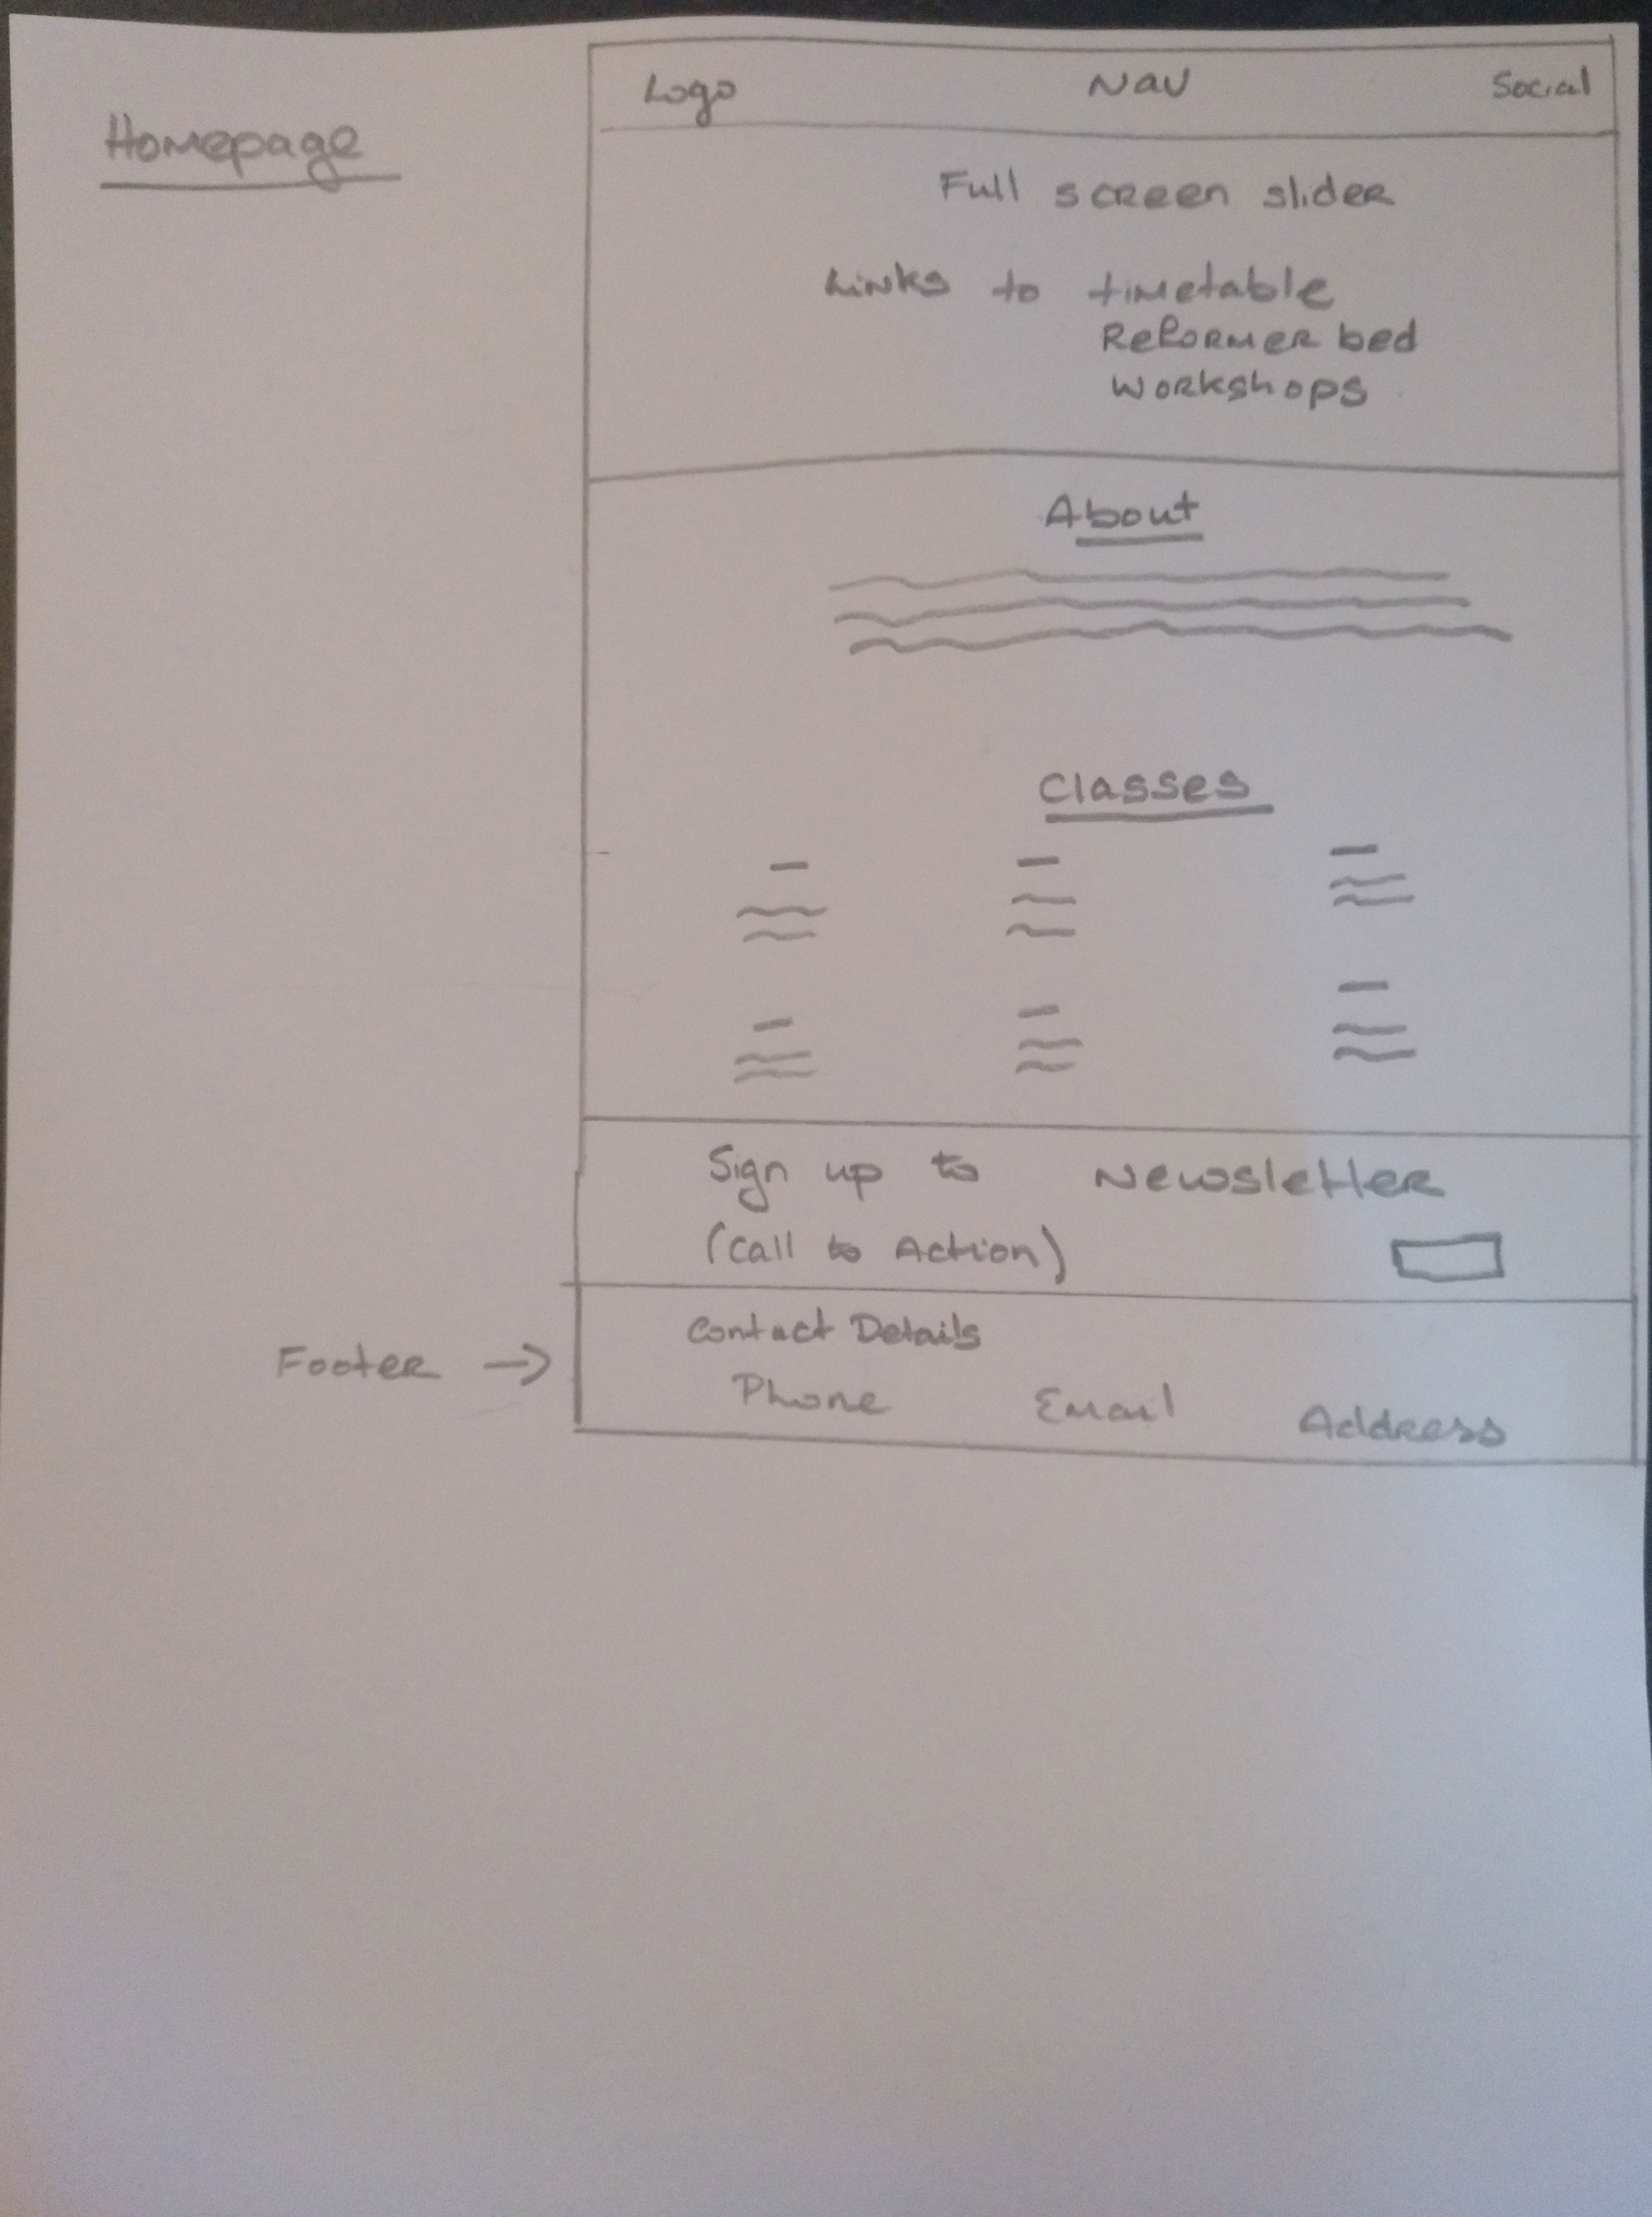 Homepage
Logo Nav Social
Full screen slider
Links to timetable
Reformer bed
Workshops
About
Classes
Sign up to Newsletter
(Call to Action)
Footer →
Contact Details
Phone Email Address